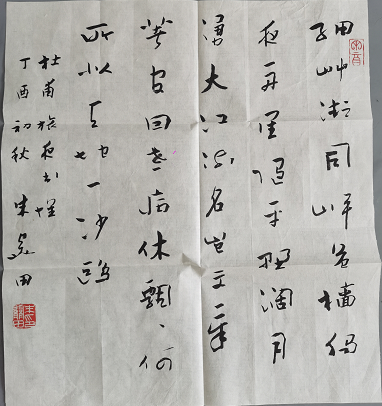 細艸微風岸危檣獨
夜舟星垂平野闊月
湧大江流名豈文章
著官因老病休飄〻何
所似天地一沙鷗
杜甫旅夜書懷
丁酉初秋 朱田